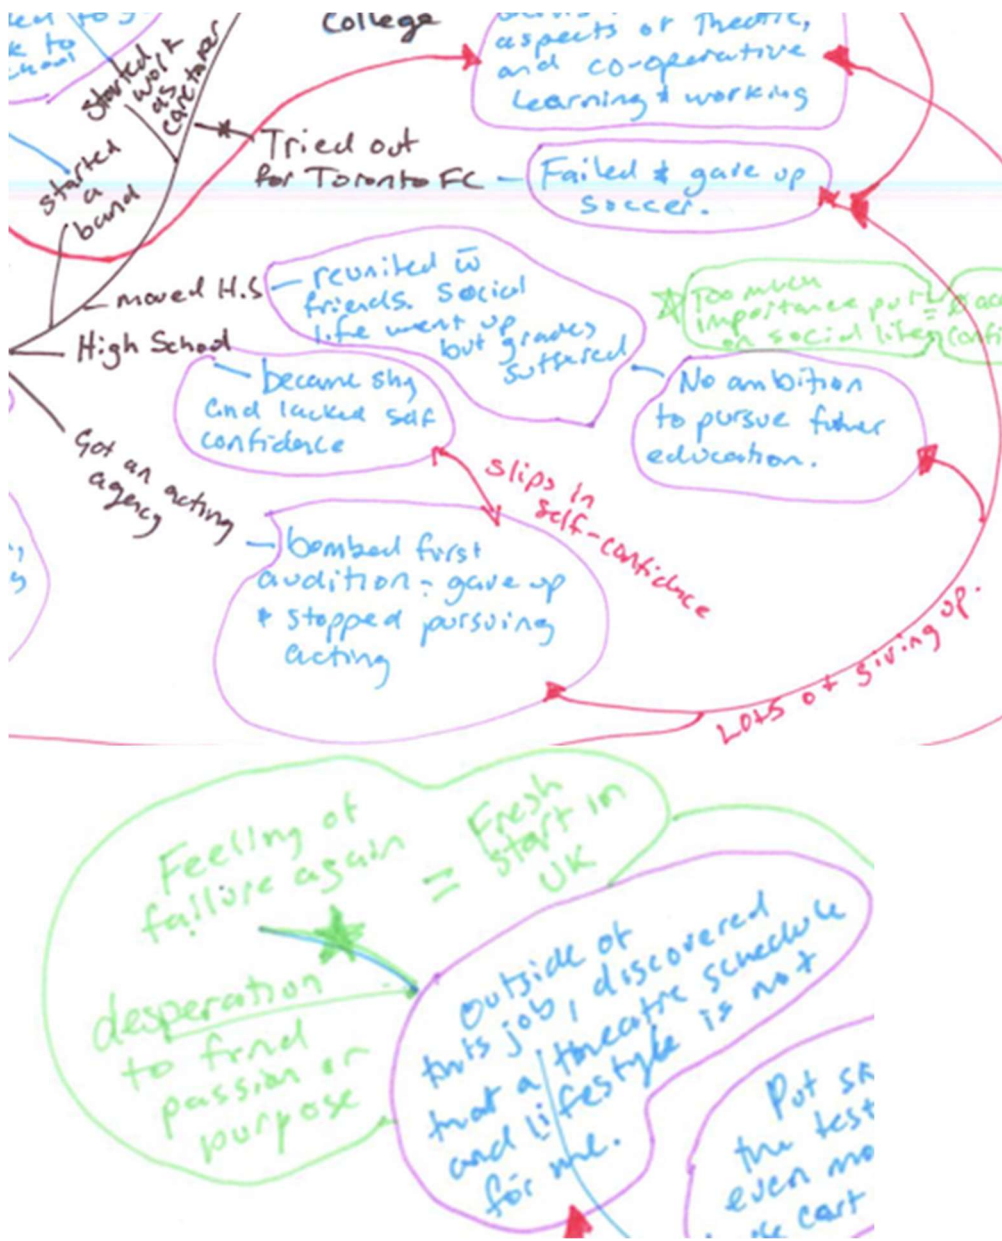 College
k to
chool
started
work
as
caretaker
aspects of theatre,
and co-operative
learning & working
started
a
band
Tried out
for Toronto FC
Failed & gave up
soccer.
moved H.S
reunited w̄
friends. Social
life went up
but grades
suffered
Too much
importance put
on social life
=
High School
became shy
and lacked self
confidence
No ambition
to pursue futher
education.
Got an acting
agency
slips in
self-confidence
bombed first
audition = gave up
& stopped pursuing
acting
Lots of giving up.
Feeling of
failure again
=
Fresh
start in
UK
desperation
to find
passion or
purpose
outside of
this job, discovered
that a theatre schedule
and lifestyle is not
for me.
Put sk
the test
even mo
cart